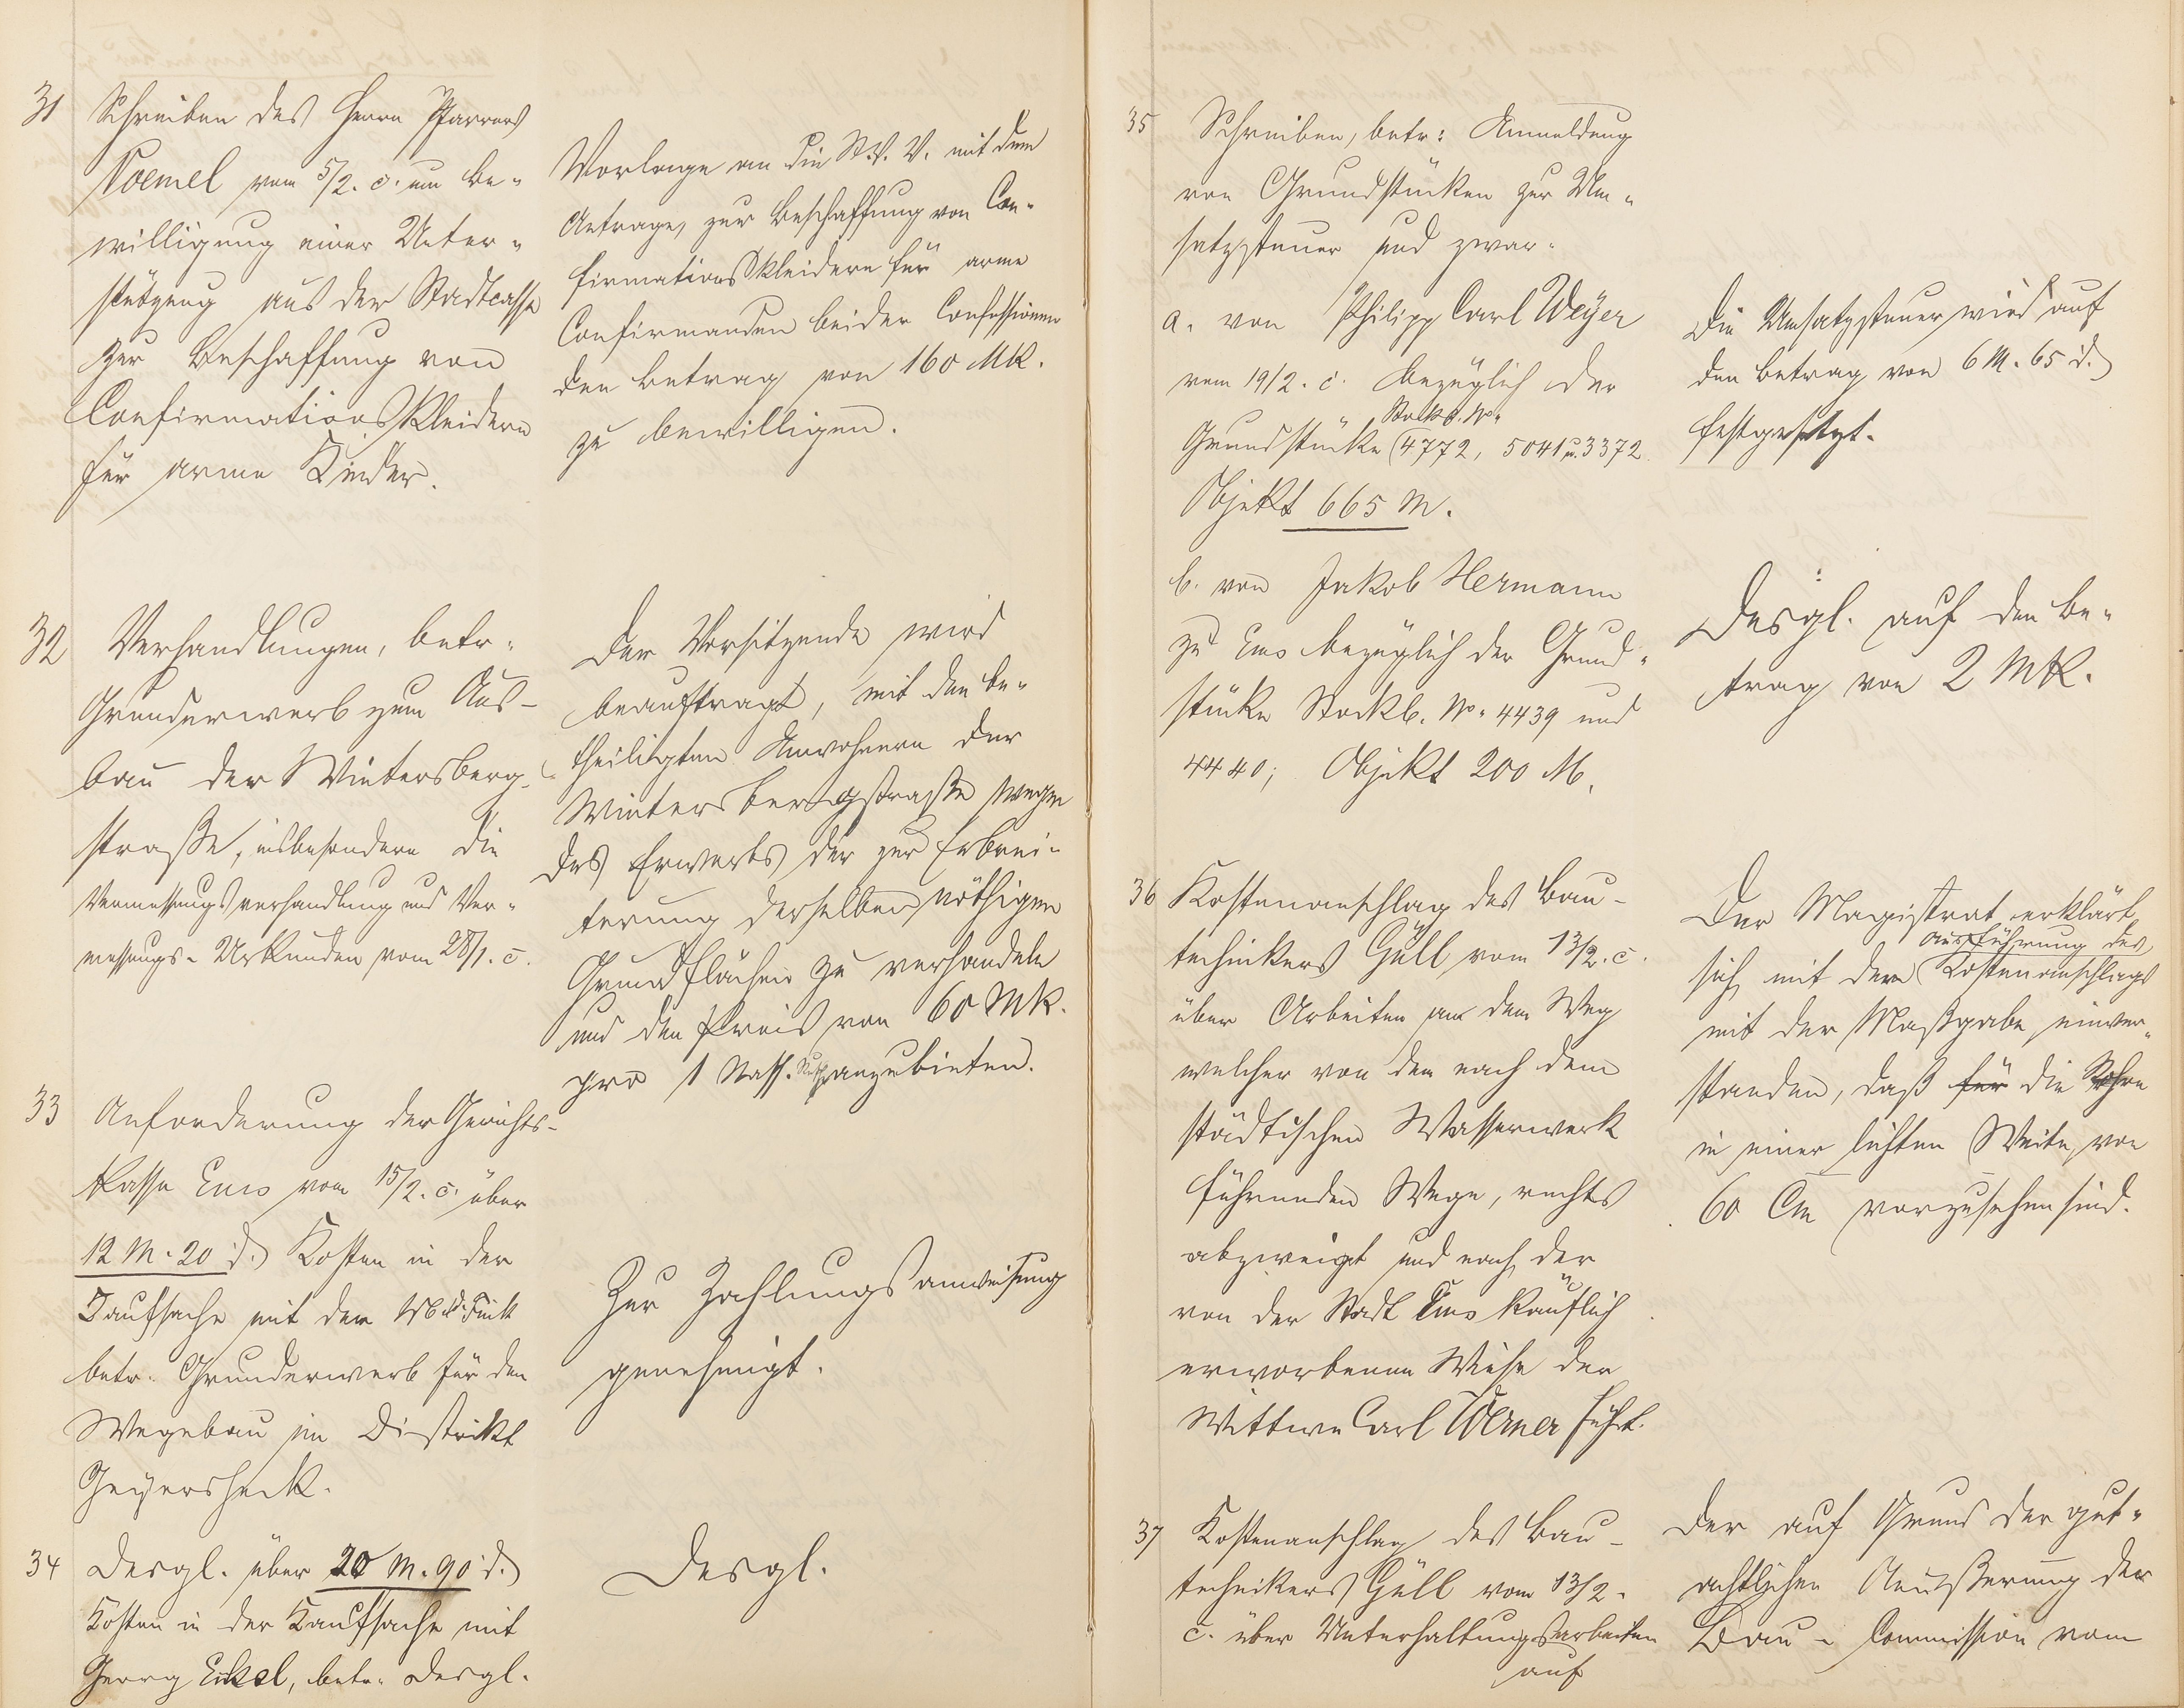 31
Schreiben des Herrn Pfarrers
Voemel vom 5/2. c. um Be-
willigung einer Unter-
stützung aus der Stadtcasse
zur Beschaffung von
Confirmationskleidern
für arme Kinder.
Vorlage an die St. V. V. mit dem
Antrage, zur Beschaffung von Con-
firmationskleidern für arme
Confirmanden beider Confessionen
den Betrag von 160 Mk.
zu bewilligen.
32
Verhandlungen, betr.
Grunderwerb zum Aus-
bau der Wintersberg-
straße, insbesondere die
Vermessungsverhandlung und Ver-
messungs-Urkunden vom 28/1. c.
Der Vorsitzende wird
beauftragt, mit den be-
theiligten Anwohnern der
Wintersbergstraße wegen
des Erwerbs der zur Erbrei-
terung derselben nöthigen
Grundflächen zu verhandeln
und den Preis von 60 Mk.
pro 1 Nass. Ruthe anzubieten.
33
Anforderung der Gerichts-
kasse Ems vom 15/2. c. über
12 M. 20 d. Kosten in der
Kaufsache mit der
betr. Grunderwerb für den
Wegebau im Distrikt
Geyersheck.
Zur Zahlungsanweisung
genehmigt.
34
Desgl. über 20 M. 90 d.
Kosten in der Kaufsache mit
Georg Eckel, betr. desgl.
Desgl.
35
Schreiben, betr: Anmeldung
von Grundstücken zur Um-
satzsteuer und zwar.
a. von Philipp Carl Weyer
vom 19/2. c. bezüglich der
Stockb. No.
Grundstücke 4772, 5041 u. 3372
Objekt 665 M.
Die Umsatzsteuer wird auf
den Betrag von 6 M. 65 d.
festgesetzt.
b. von Jakob Hermann
zu Ems bezüglich der Grund-
stücke Stockb. No. 4439 und
4440; Objekt 200 M.
Desgl. auf den Be-
trag von 2 Mk.
36
Kostenanschlag des Bau-
technikers Güll vom 13/2. c.
über Arbeiten an dem Weg
welcher von dem nach dem
städtischen Wasserwerk
führenden Wege, rechts
abzweigt und nach der
von der Stadt Ems käuflich
erworbenen Wiese der
Wittwe Carl Werner führt.
Der Magistrat erklärt
Ausführung des
sich mit der Kostenanschlags
mit der Maßgabe einver-
standen, daß für die Rohre
in einer lichten Weite von
60 Cm vorzusehen sind.
37
Kostenanschlag des Bau-
technikers Güll vom 13/2.
c. über Unterhaltungsarbeiten
auf
Der auf Grund der gut-
achtlichen Aeußerung der
Bau-Commission vom